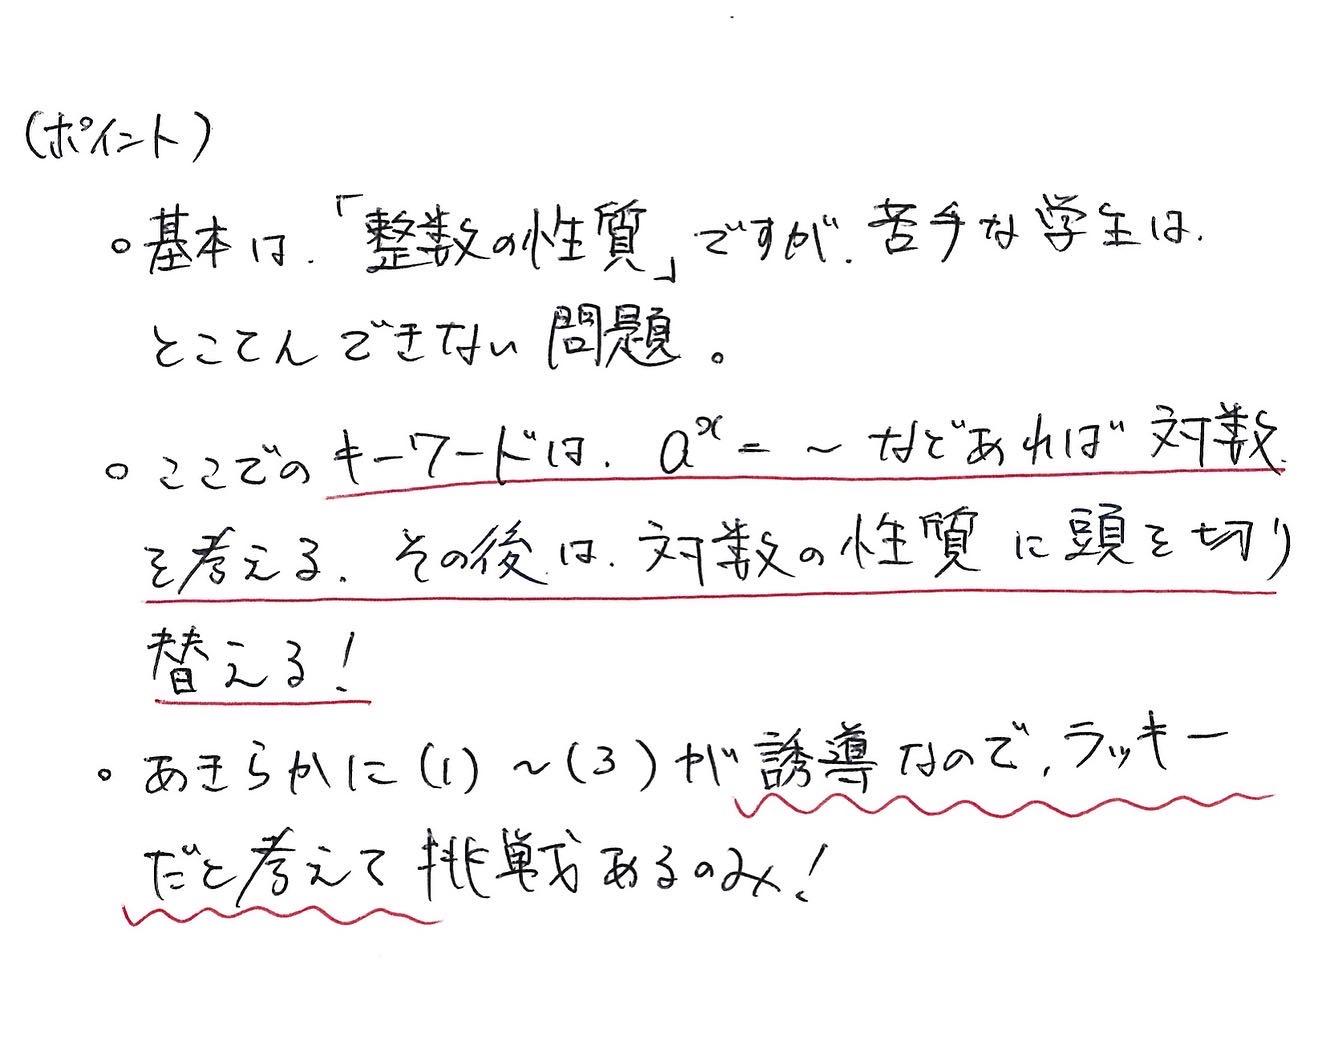 (ポイント)
○基本は、「整数の性質」ですが、苦手な学生は、
とことんできない問題。
○ここでのキーワードは、a^x = ～ などであれば対数
を考える、その後は、対数の性質に頭を切り
替える!
○あきらかに(1)～(3)が誘導なので、ラッキー
だと考えて挑戦あるのみ!